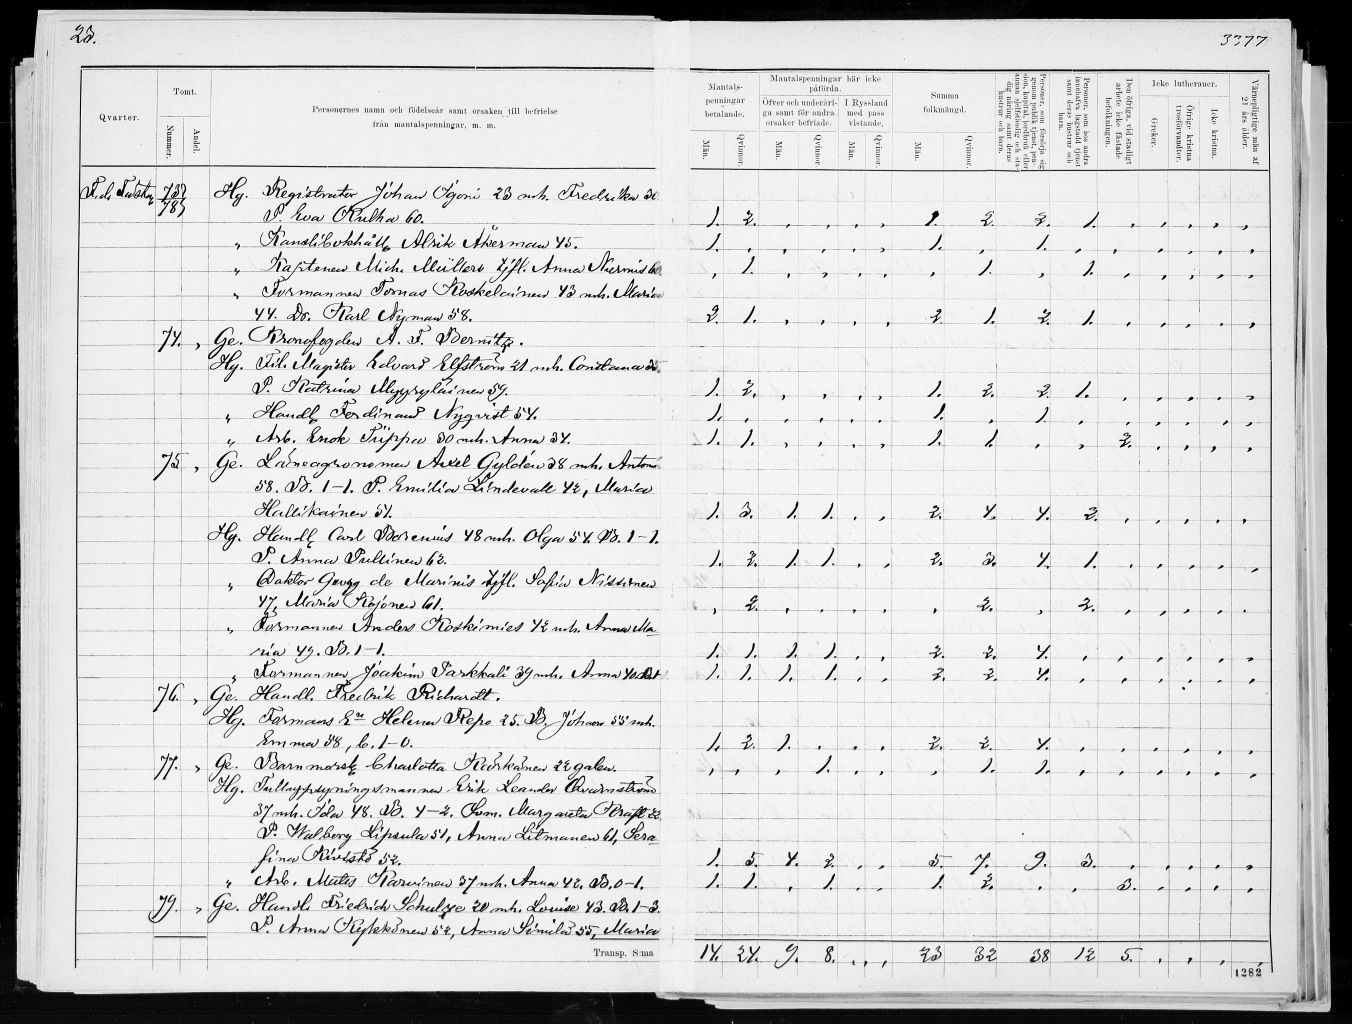 23.
3377
Qvarter.
Tomt.
Nummer.
Andel.
Personernes namn och födelseår samt orsaken till befrielse
från mantalspenningar, m. m.
Mantals-
penningar
betalande.
Män.
Qvinnor.
Mantalspenningar här icke
påförda.
Öfver och underåri-
ga samt för andra
orsaker befriade.
Män.
Qvinnor.
I Ryssland
med pass
vistande.
Män.
Qvinnor.
Summa
folkmängd.
Män.
Qvinnor.
Personer, som försörja sig
genom publik tjenst, pen-
sion, kapital, jordbruk eller
annan sjelfständig och sta-
dig näring samt deras
hustrur och barn.
Personer, som hos andra
innehafva lagstadd tjenst
samt deras hustrur och
barn.
Den öfriga, vid stadigt
arbete icke fästade
befolkningen.
Icke lutheraner.
Greker.
Örige kristna
trosförvandter.
Icke kristna.
Värnepligtige män af
21 års ålder.
73 Hg. Registrator Johan Ogoni 23 mh. Fredrika 30
78 P. Eva Kulha 60. 1. 2. 1. 2. 2. 1.
" Kanslibokhåll. Alrik Åkerman 45. 1. 1. 1.
" Kaptenen Mich. Müllers tjfl. Anna Nurmis 1. 1. 1.
" Formannen Tomas Koskelainen 43 mh. Maria
44. Do. Karl Nyman 58. 2. 1. 2. 1. 2. 1.
74. " Ge. Kronofogden A. F. Bernitz.
Hg. Fil. Magister Edvard Elfström 21 mh. Constance
P. Katrina Myyryläinen 59. 1. 2. 1. 2. 2. 1.
" Handl. Ferdinand Nyqvist 54. 1. 1. 1.
" Arb. Enok Trippa 30 mh. Anna 34. 1. 1. 1. 1. 2.
75. " Ge. Länsagronomen Axel Gyldén 38 mh. Antoni
58. B. 1-1. P. Emilia Lindevall 42, Maria
Hallikainen 51. 1. 3. 1. 1. 2. 4. 4. 2.
Hg. Handl. Carl Borenius 48 mh. Olga 54. B. 1-1.
P. Anna Pullinen 62. 1. 2. 1. 1. 2. 3. 4. 1.
" Doktor Georg de Marinis tjfl. Sofia Nissinen
47, Maria Kojonen 61. 2. 2. 2.
" Formannen Anders Koskimies 42 mh. Anna Ma-
ria 49. B. 1-1. 1. 1. 1. 1. 2. 2. 4.
" Formannen Joakim Parkkali 39 mh. Anna 40. 1. 1. 1. 1. 2. 2. 4.
76. " Ge. Handl. Fredrik Richardt.
Hg. Formans En Helena Repo 25. B. Johan 55 mh.
Emma 58, b. 1-0. 1. 2. 1. 2. 2. 4.
77. " Ge. Barnmorsk. Charlotta Kärkänen 22 galen. 1. 1. 1.
Hg. Tulluppsyningsmannen Erik Leander Qvarnström
37 mh. Ida 48. B. 4-2. Svm. Margareta Kraft 22
P. Walborg Lipsula 51, Anna Litmanen 61, Sera-
fina Kivistö 52. 1. 5. 4. 2. 5. 7. 9. 3.
" Arb. Mats Karvinen 37 mh. Anna 42. B. 0-1. 1. 1. 1. 1. 2. 3.
79. " Ge. Handl. Friedrich Schulze 20 mh. Louise 43. B. 1-3.
P. Anna Kykkänen 52, Anna Similä 55, Maria
Transp. S:ma 14. 24. 9. 8. 23 32 38 12 5.
1282